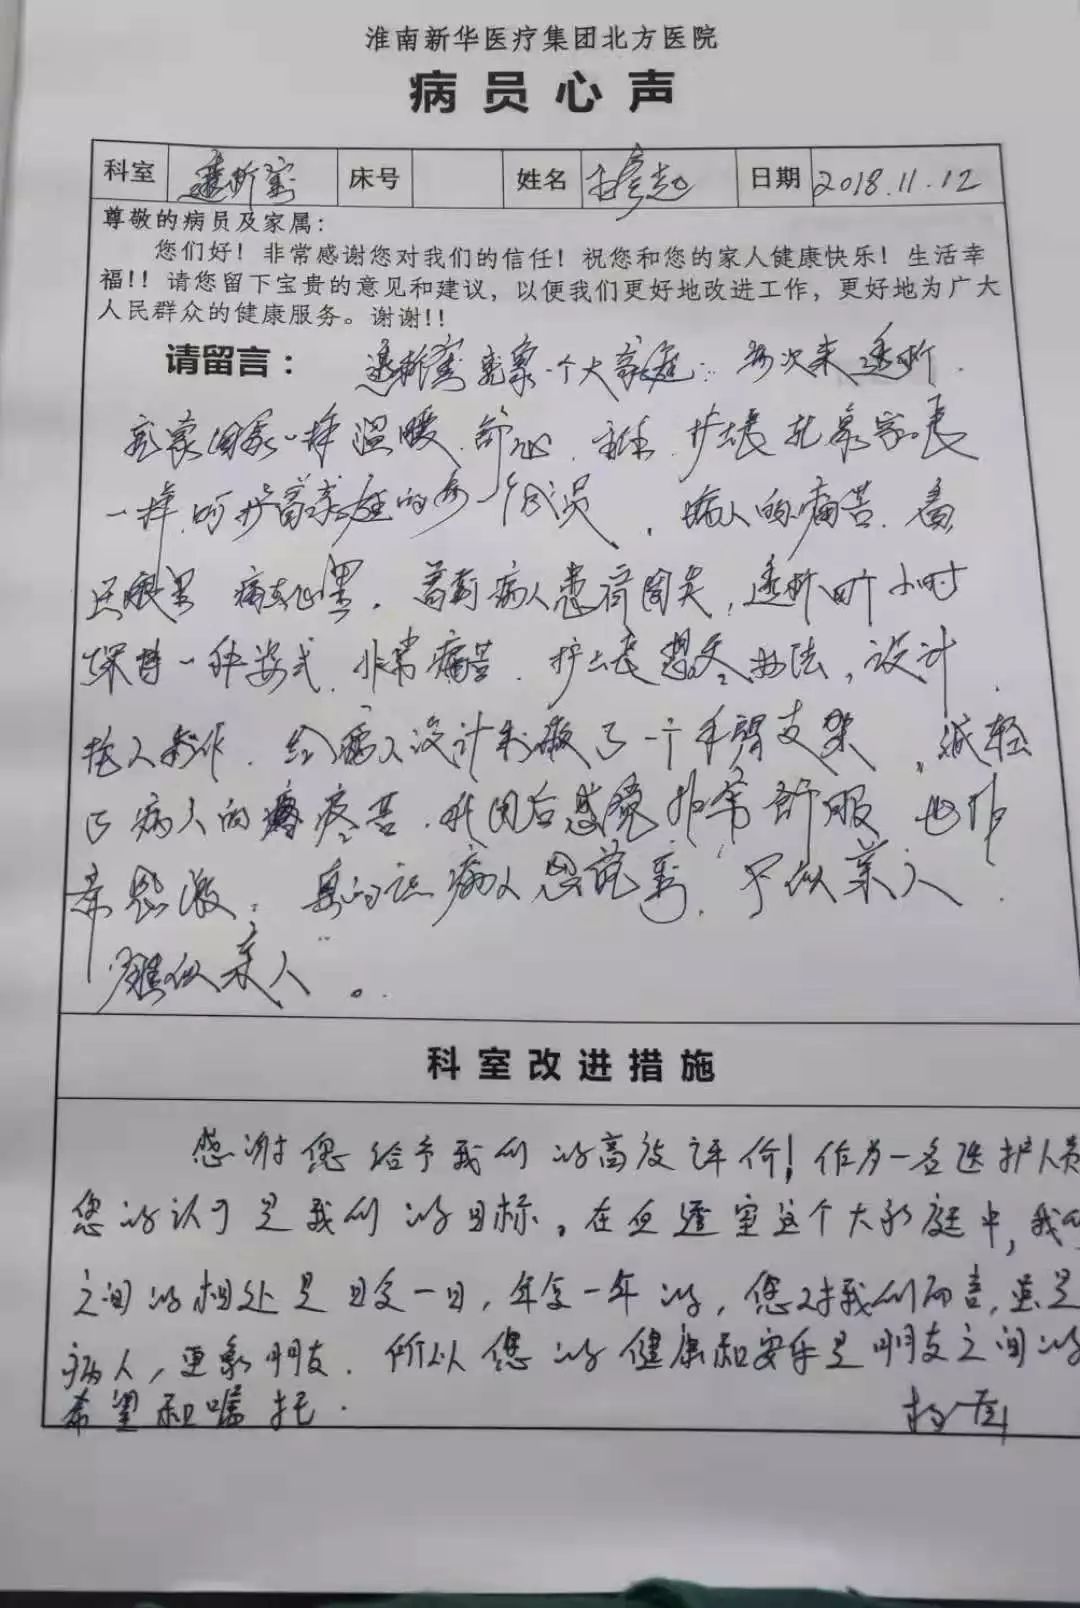 淮南新华医疗集团北方医院
病员心声
科室 透析室 床号 姓名 日期 2018.11.12
尊敬的病员及家属：
您们好！非常感谢您对我们的信任！祝您和您的家人健康快乐！生活幸
福!! 请您留下宝贵的意见和建议，以便我们更好地改进工作，更好地为广大
人民群众的健康服务。谢谢!!
请留言： 透析室就象一个大家庭：每次来透析．
就象回家一样温暖．舒心．主任．护士长就象家长
一样，呵护着家庭的每一个成员，病人的痛苦．看
在眼里 痛在心里．看到病人患有，透析四个小时
保持一种姿式．非常痛苦．护士长想尽办法，设计．
找人制作．给病人设计制做了一个手臂支架，减轻
了病人的疼苦．我用后感觉非常舒服 也非
常感激． 真的让病人 不似亲人．
胜似亲人。
科室改进措施
感谢您给予我们的高度评价！作为一名医护人员
您的认可是我们的目标。在血透室这个大家庭中，我们
之间的相处是日复一日，年复一年的，您对我们而言，虽是
病人，更象朋友．所以您的健康和安乐是朋友之间的
希望和嘱托．